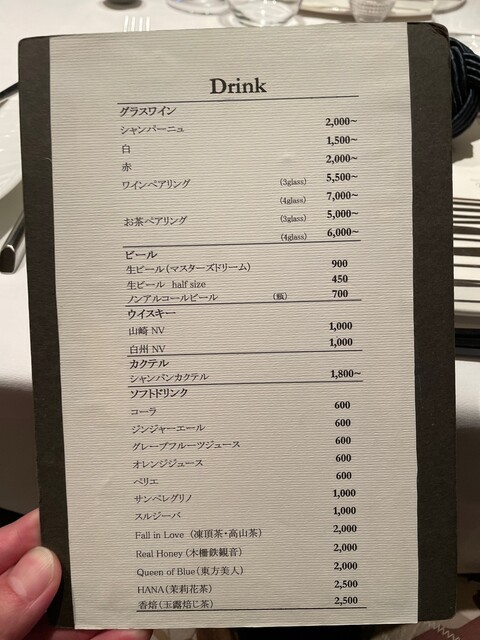 Drink
グラスワイン
シャンパーニュ 2,000~
白 1,500~
赤 2,000~
ワインペアリング (3glass) 5,500~
(4glass) 7,000~
お茶ペアリング (3glass) 5,000~
(4glass) 6,000~
ビール
生ビール(マスターズドリーム) 900
生ビール half size 450
ノンアルコールビール (瓶) 700
ウイスキー
山崎 NV 1,000
白州 NV 1,000
カクテル
シャンパンカクテル 1,800~
ソフトドリンク
コーラ 600
ジンジャーエール 600
グレープフルーツジュース 600
オレンジジュース 600
ペリエ 600
サンペレグリノ 1,000
スルジーバ 1,000
Fall in Love (凍頂茶・高山茶) 2,000
Real Honey (木柵鉄観音) 2,000
Queen of Blue (東方美人) 2,000
HANA (茉莉花茶) 2,500
香焙 (玉露焙じ茶) 2,500